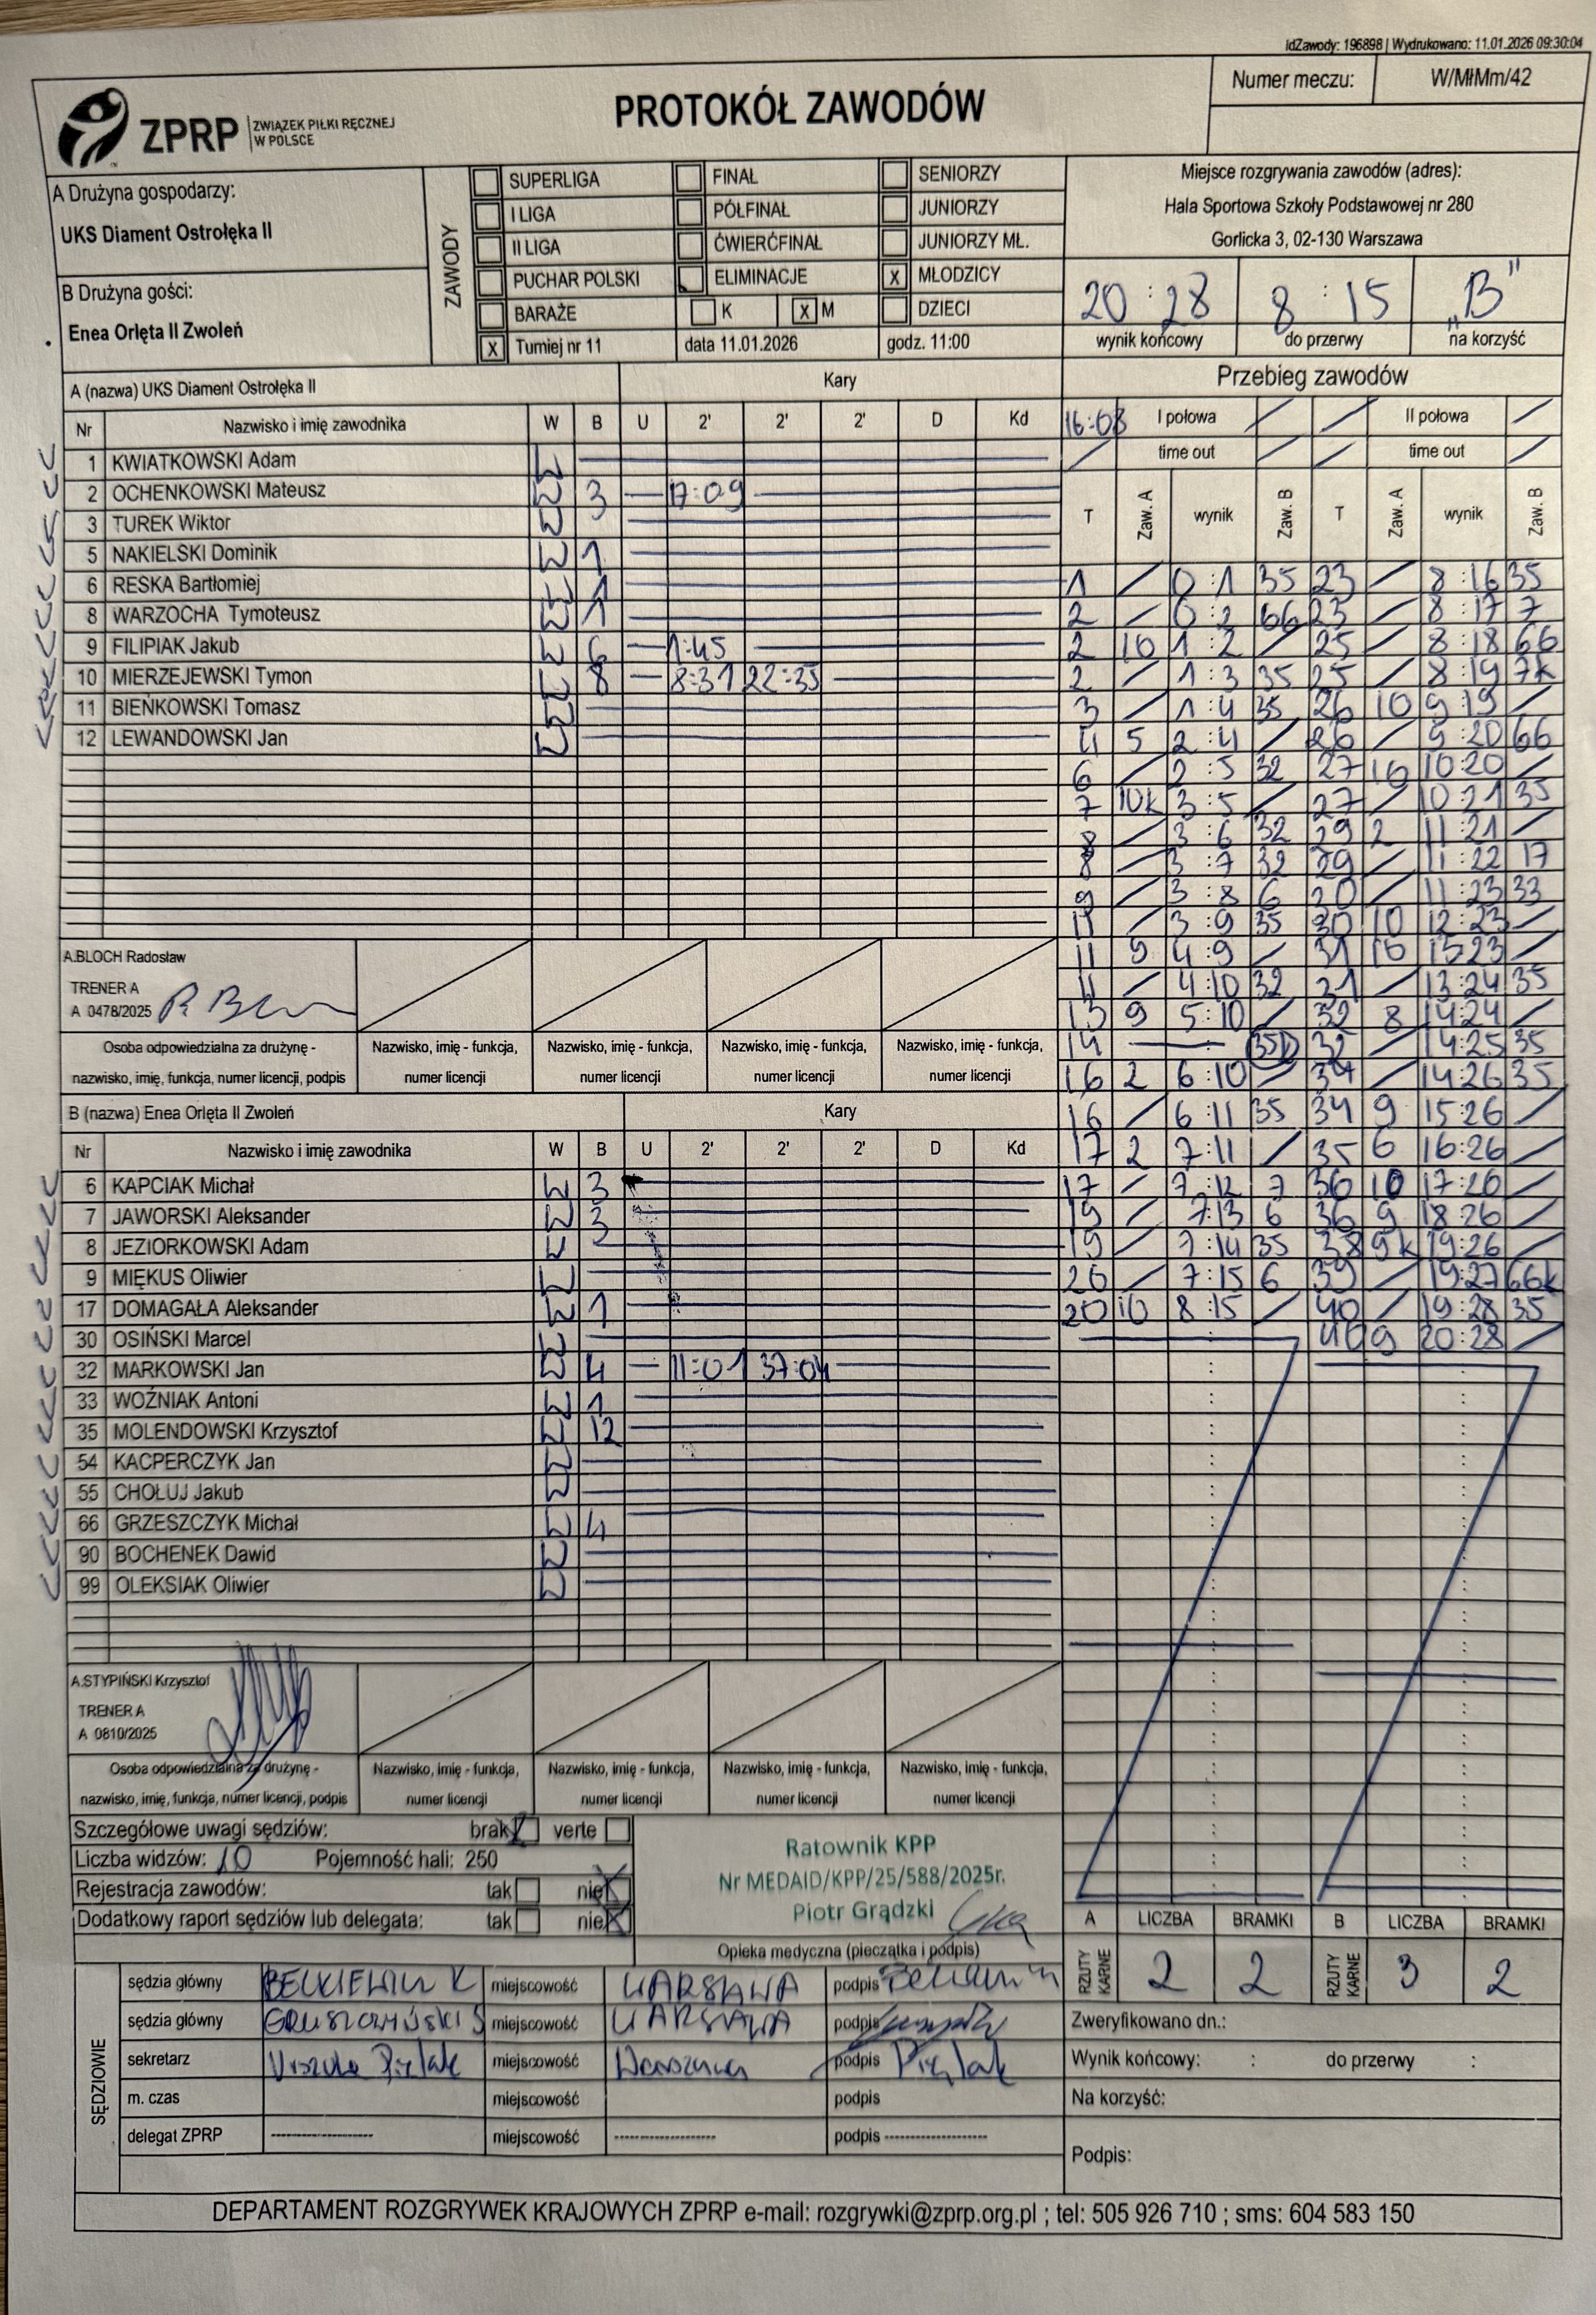 idZawody: 196898 | Wydrukowano: 11.01.2026 09:30:04
Numer meczu: W/MłMm/42
ZPRP ZWIĄZEK PIŁKI RĘCZNEJ W POLSCE
PROTOKÓŁ ZAWODÓW
A Drużyna gospodarzy:
UKS Diament Ostrołęka II
B Drużyna gości:
Enea Orlęta II Zwoleń
ZAWODY
SUPERLIGA FINAŁ SENIORZY
I LIGA PÓŁFINAŁ JUNIORZY
II LIGA ĆWIERĆFINAŁ JUNIORZY MŁ.
PUCHAR POLSKI ELIMINACJE X MŁODZICY
BARAŻE K X M DZIECI
X Turniej nr 11 data 11.01.2026 godz. 11:00
Miejsce rozgrywania zawodów (adres):
Hala Sportowa Szkoły Podstawowej nr 280
Gorlicka 3, 02-130 Warszawa
20 : 28 8 : 15 „B"
wynik końcowy do przerwy na korzyść
A (nazwa) UKS Diament Ostrołęka II Kary
Nr Nazwisko i imię zawodnika W B U 2' 2' 2' D Kd
1 KWIATKOWSKI Adam W
2 OCHENKOWSKI Mateusz W 3 17:09
3 TUREK Wiktor W
5 NAKIELSKI Dominik W 1
6 RESKA Bartłomiej W 1
8 WARZOCHA Tymoteusz W 1
9 FILIPIAK Jakub W 6 1:45
10 MIERZEJEWSKI Tymon W 8 8:31 22:35
11 BIEŃKOWSKI Tomasz W
12 LEWANDOWSKI Jan W
A.BLOCH Radosław
TRENER A
A 0478/2025
Osoba odpowiedzialna za drużynę - nazwisko, imię, funkcja, numer licencji, podpis
Nazwisko, imię - funkcja, numer licencji
Nazwisko, imię - funkcja, numer licencji
Nazwisko, imię - funkcja, numer licencji
Nazwisko, imię - funkcja, numer licencji
B (nazwa) Enea Orlęta II Zwoleń Kary
Nr Nazwisko i imię zawodnika W B U 2' 2' 2' D Kd
6 KAPCIAK Michał W 3
7 JAWORSKI Aleksander W 3
8 JEZIORKOWSKI Adam W
9 MIĘKUS Oliwier W
17 DOMAGAŁA Aleksander W 1
30 OSIŃSKI Marcel W
32 MARKOWSKI Jan W 4 11:01 37:04
33 WOŹNIAK Antoni W 1
35 MOLENDOWSKI Krzysztof W 12
54 KACPERCZYK Jan W
55 CHOŁUJ Jakub W
66 GRZESZCZYK Michał W 4
90 BOCHENEK Dawid W
99 OLEKSIAK Oliwier W
A.STYPIŃSKI Krzysztof
TRENER A
A 0810/2025
Osoba odpowiedzialna za drużynę - nazwisko, imię, funkcja, numer licencji, podpis
Nazwisko, imię - funkcja, numer licencji
Nazwisko, imię - funkcja, numer licencji
Nazwisko, imię - funkcja, numer licencji
Nazwisko, imię - funkcja, numer licencji
Przebieg zawodów
16:08 I połowa II połowa
time out time out
T Zaw. A wynik Zaw. B T Zaw. A wynik Zaw. B
1 / 0 : 1 35 23 / 8 : 16 35
2 / 0 : 2 66 23 / 8 : 17 7
2 10 1 : 2 / 25 / 8 : 18 66
2 / 1 : 3 35 25 / 8 : 19 7k
3 / 1 : 4 35 26 10 9 : 19 /
4 5 2 : 4 / 26 / 9 : 20 66
6 / 2 : 5 32 27 10 10:20 /
7 10k 3 : 5 / 27 / 10:21 35
8 / 3 : 6 32 29 2 11:21 /
8 / 3 : 7 32 29 / 11:22 17
9 / 3 : 8 6 30 / 11:23 33
11 / 3 : 9 35 30 10 12:23 /
11 9 4 : 9 / 31 10 13:23 /
11 / 4:10 32 31 / 13:24 35
13 9 5:10 / 32 8 14:24 /
14 35D 32 / 14:25 35
16 2 6:10 / 34 / 14:26 35
16 / 6:11 35 34 9 15:26 /
17 2 7:11 / 35 6 16:26 /
17 / 7:12 7 36 10 17:26 /
19 / 7:13 6 36 9 18:26 /
19 / 7:14 35 38 9k 19:26 /
20 / 7:15 6 39 / 19:27 66k
20 10 8:15 / 40 / 19:28 35
40 9 20:28 /
Szczegółowe uwagi sędziów: brak verte
Liczba widzów: 10 Pojemność hali: 250
Rejestracja zawodów: tak nie
Dodatkowy raport sędziów lub delegata: tak nie
Ratownik KPP
Nr MEDAID/KPP/25/588/2025r.
Piotr Grądzki
Opieka medyczna (pieczątka i podpis)
A LICZBA BRAMKI B LICZBA BRAMKI
RZUTY KARNE 2 2 RZUTY KARNE 3 2
SĘDZIOWIE
sędzia główny K miejscowość WARSZAWA podpis
sędzia główny miejscowość WARSZAWA podpis
sekretarz Urszula miejscowość Warszawa podpis
m. czas miejscowość podpis
delegat ZPRP miejscowość podpis
Zweryfikowano dn.:
Wynik końcowy: : do przerwy :
Na korzyść:
Podpis:
DEPARTAMENT ROZGRYWEK KRAJOWYCH ZPRP e-mail: rozgrywki@zprp.org.pl ; tel: 505 926 710 ; sms: 604 583 150